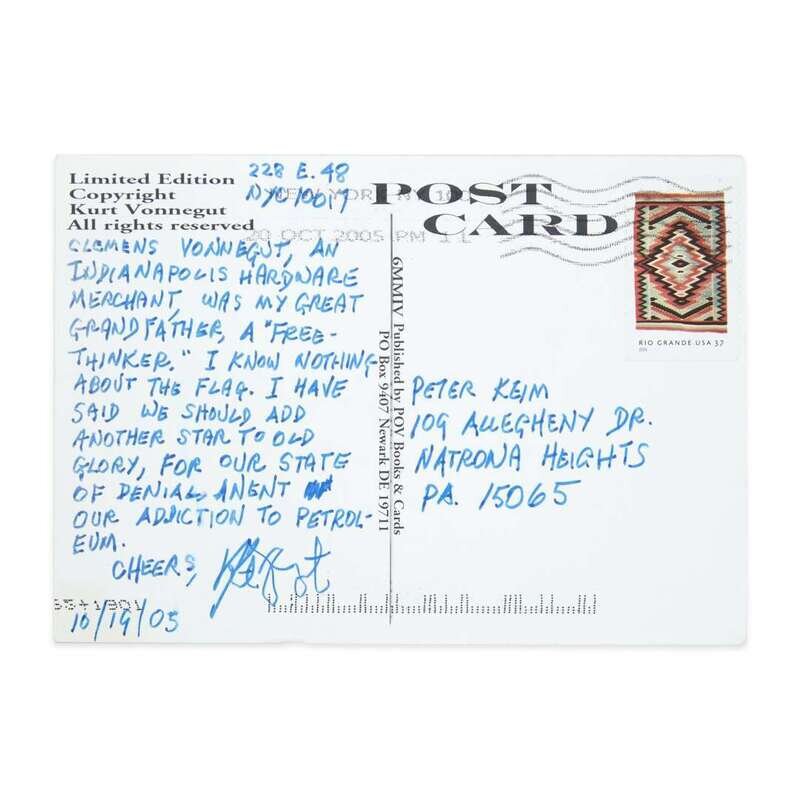 Limited Edition
Copyright
Kurt Vonnegut
All rights reserved
228 E. 48
NYC 10017
NEW YORK NY 100
20 OCT 2005 PM 11
POST
CARD
CLEMENS VONNEGUT, AN
INDIANAPOLIS HARDWARE
MERCHANT, WAS MY GREAT
GRANDFATHER, A "FREE-
THINKER." I KNOW NOTHING
ABOUT THE FLAG. I HAVE
SAID WE SHOULD ADD
ANOTHER STAR TO OLD
GLORY, FOR OUR STATE
OF DENIAL ANENT
OUR ADDICTION TO PETROL-
EUM.
CHEERS,
10/19/05
6MMIV Published by POV Books & Cards
PO Box 9407 Newark DE 19711
RIO GRANDE USA 37
PETER KEIM
109 ALLEGHENY DR.
NATRONA HEIGHTS
PA. 15065